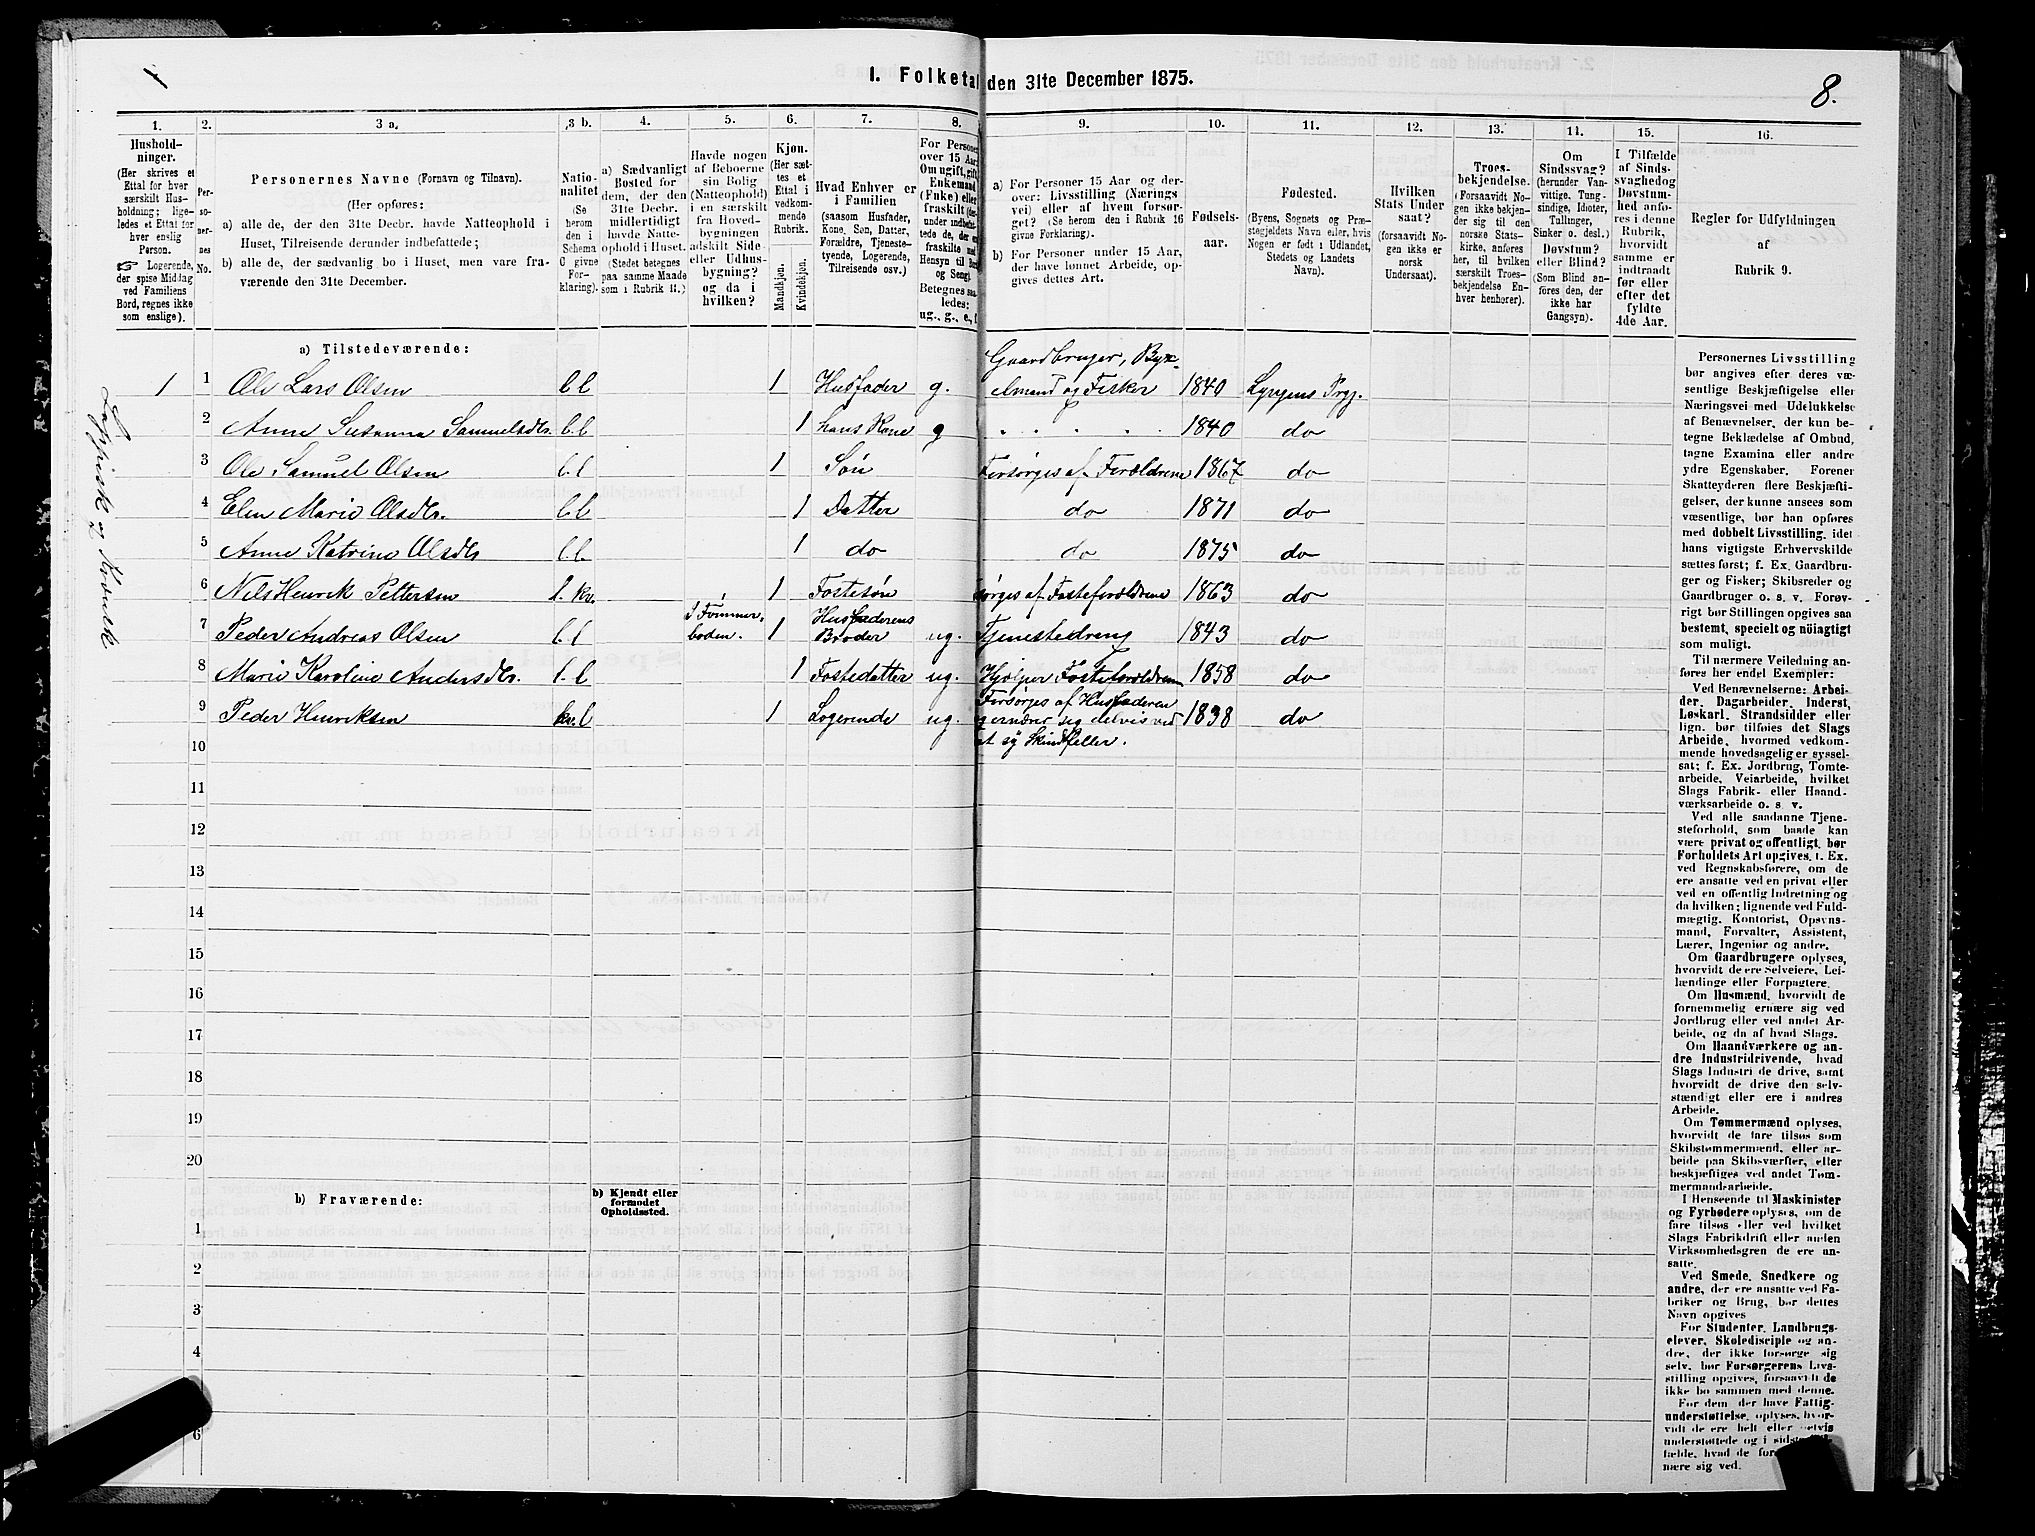 1. Folketal den 31te December 1875.
8.
1.
2.
3 a.
3 b.
4.
5.
6.
7.
8.
9.
10.
11.
12.
13.
14.
15.
16.
Hushold-
ninger.
(Her skrives et
Ettal for hver
særskilt Hus-
holdning; lige-
ledes et Ettal for
hver enslig
Person.
☞ Logerende,
der spise Middag
ved Familiens
Bord, regnes ikke
som enslige).
Per-
so-
ner-
nes
No.
Personernes Navne (Fornavn og Tilnavn).
(Her opføres:
a) alle de, der den 31te Decbr. havde Natteophold i
Huset, Tilreisende derunder indbefattede;
b) alle de, der sædvanlig bo i Huset, men vare fra-
værende den 31te December.
Natio-
nalitet
(Se
herom
den i
Schema
C givne
For-
klaring).
a) Sædvanligt
Bosted for
dem, der den
31te Decbr.
midlertidigt
havde Natte-
ophold i Huset.
(Stedet betegnes
paa samme Maade
som i Rubrik 11.)
Havde nogen
af Beboerne
sin Bolig
(Natteophold)
i en særskilt
fra Hoved-
bygningen
adskilt Side-
eller Udhus-
bygning?
og da i
hvilken?
Kjøn.
(Her sæt-
tes et
Ettal i
vedkom-
mende
Rubrik.
Mandkjøn.
Kvindekjøn.
Hvad Enhver er
i Familien
(saasom Husfader,
Kone, Søn, Datter,
Forældre, Tjeneste-
tyende, Logerende,
Tilreisende osv.)
For Personer
over 15 Aar:
Om ugift, gift,
Enkemand
(Enke) eller
fraskilt
Betegnes saa-
ledes:
ug., g., e., f.
a) For Personer 15 Aar og der-
over: Livsstilling (Nærings-
vei) eller af hvem forsør-
get? (Se herom den i Rubrik 16
givne Forklaring).
b) For Personer under 15 Aar,
der have lønnet Arbeide, op-
gives dettes Art.
Fødsels-
aar.
Fødested.
(Byens, Sognets og Præ-
stegjeldets Navn eller, hvis
Nogen er født i Udlandet,
Stedets og Landets
Navn).
Hvilken
Stats Under-
saat?
(forsaavidt No-
gen ikke er
norsk
Undersaat).
Troes-
bekjendelse.
(Forsaavidt No-
gen ikke bekjen-
der sig til den
norske Stats-
kirke, anføres
her, til hvilken
særskilt Troes-
bekjendelse En-
hver henhører).
Om
Sindssvag?
(herunder Van-
vittige, Tung-
sindige, Idioter,
Tullinger,
Sinker o. desl.)
Døvstum?
eller Blind?
(Som Blind an-
føres den, der
ikke har
Gangsyn).
I Tilfælde
af Sinds-
svaghed og
Døvstum-
hed anfø-
res i denne
Rubrik,
hvorvidt
samme er
indtraadt
før eller
efter det
fyldte
4de Aar.
Regler for Udfyldningen
af
Rubrik 9.
a) Tilstedeværende:
Gaardbruger, Byx-
1 1 Ole Lars Olsen b.b 1 Husfader g. elmand og Fisker 1840 Lyngens Prgj.
2 Anne Susanna Samuelsdtr. b.b 1 hans Kone g 1840 do
3 Ole Samuel Olsen b.b 1 Søn Forsørges af Forældrene 1867 do
4 Elen Marie Olsdtr. b.b 1 Datter do 1871 do
5 Anne Katrine Olsdtr b.b 1 do do 1875 do
6 Nils Henrik Pettersen kv. 1 Fostesøn sørges af Fosteforældrene 1863 do
7 Peder Andreas Olsen b.b I Tømmer-
boden. 1 Husfaderens
Broder ug. Tjenestedreng 1843 do
8 Marie Karoline Andersdtr. 1 Fostedatter ug. Hjælper Fosteforældrene 1858 do
9 Peder Henriksen 1 Logerende ug. Forsørges af Husfaderen
og ernærer sig delvis ved
at sy Skindfeller. 1838 do
10
11
12
13
14
15
16
17
18
19
20
Lappisk og Norsk
b) Fraværende:
b) Kjendt eller
formodet
Opholdssted.
1
2
3
4
6
Personernes Livsstilling
bør angives efter deres væ-
sentlige Beskjæftigelse eller
Næringsvei med Udelukkelse
af Benævnelser, der kun be-
tegne Beklædelse af Ombud,
tagne Examina eller andre
ydre Egenskaber. Forener
Skatteyderen flere Beskjæfti-
gelser, der kunne ansees som
væsentlige, bør han opføres
med dobbelt Livsstilling, idet
hans vigtigste Erhvervskilde
sættes først; f. Ex. Gaardbru-
ger og Fisker; Skibsreder og
Gaardbruger o. s. v. Forøv-
rigt bør Stillingen opgives saa
bestemt, specielt og nöiagtigt
som muligt.
Til nærmere Veiledning an-
føres her endel Exempler:
Ved Benævnelserne: Arbei-
der, Dagarbeider, Inderst,
Løskarl, Strandsidder eller
lign. bør tilføies det Slags
Arbeide, hvormed vedkom-
mende hovedsagelig er syssel-
sat; f. Ex. Jordbrug, Tomte-
arbeide, Veiarbeide, hvilket
Slags Fabrik- eller Haand-
værksarbeide o. s. v.
Ved alle saadanne Tjene-
steforhold, som baade kan
være privat og offentligt, bør
Forholdets Art opgives, t. Ex.
ved Regnskabsførere, om de
ere ansatte ved en privat eller
ved en offentlig Indretning og
da hvilken; lignende ved Fuld-
mægtig, Kontorist, Opsyns-
mand, Forvalter, Assistent,
Lærer, Ingeniør og andre.
Om Gaardbrugere oplyses,
hvorvidt de ere Selveiere, Lei-
lændinge eller Forpagtere.
Om Husmænd, hvorvidt de
fornemmelig ernære sig ved
Jordbrug eller ved andet Ar-
beide, og da af hvad Slags.
Om Haandværkere og an-
dre Industridrivende, hvad
Slags Industri de drive, samt
hvorvidt de drive den selv-
stændigt eller ere i andres
Arbeide.
Om Tømmermænd oplyses,
hvorvidt de fare tilsøs som
Skibstømmermænd, eller ar-
beide paa Skibsværfter, eller
beskjæftiges ved andet Tøm-
mermandsarbeide.
I Henseende til Maskinister
og Fyrbødere oplyses, om de
fare tilsøs eller ved hvilket
Slags Fabrikdrift eller anden
Virksomhedsgren de ere an-
satte.
Ved Smede, Snedkere og
andre, der ere ansatte ved Fa-
briker og Brug, bør dettes
Navn opgives
For Studenter, Landbrugs-
elever, Skoledisciple og an-
dre, der ikke forsørge sig
selv, bør Forsørgerens Livs-
stilling opgives, forsaavidt de
ikke bo sammen med denne.
For dem, der have Fattig-
understøttelse, oplyses, hvor-
vidt de ere helt eller delvis
understøttede og i sidste
nære sig ved.